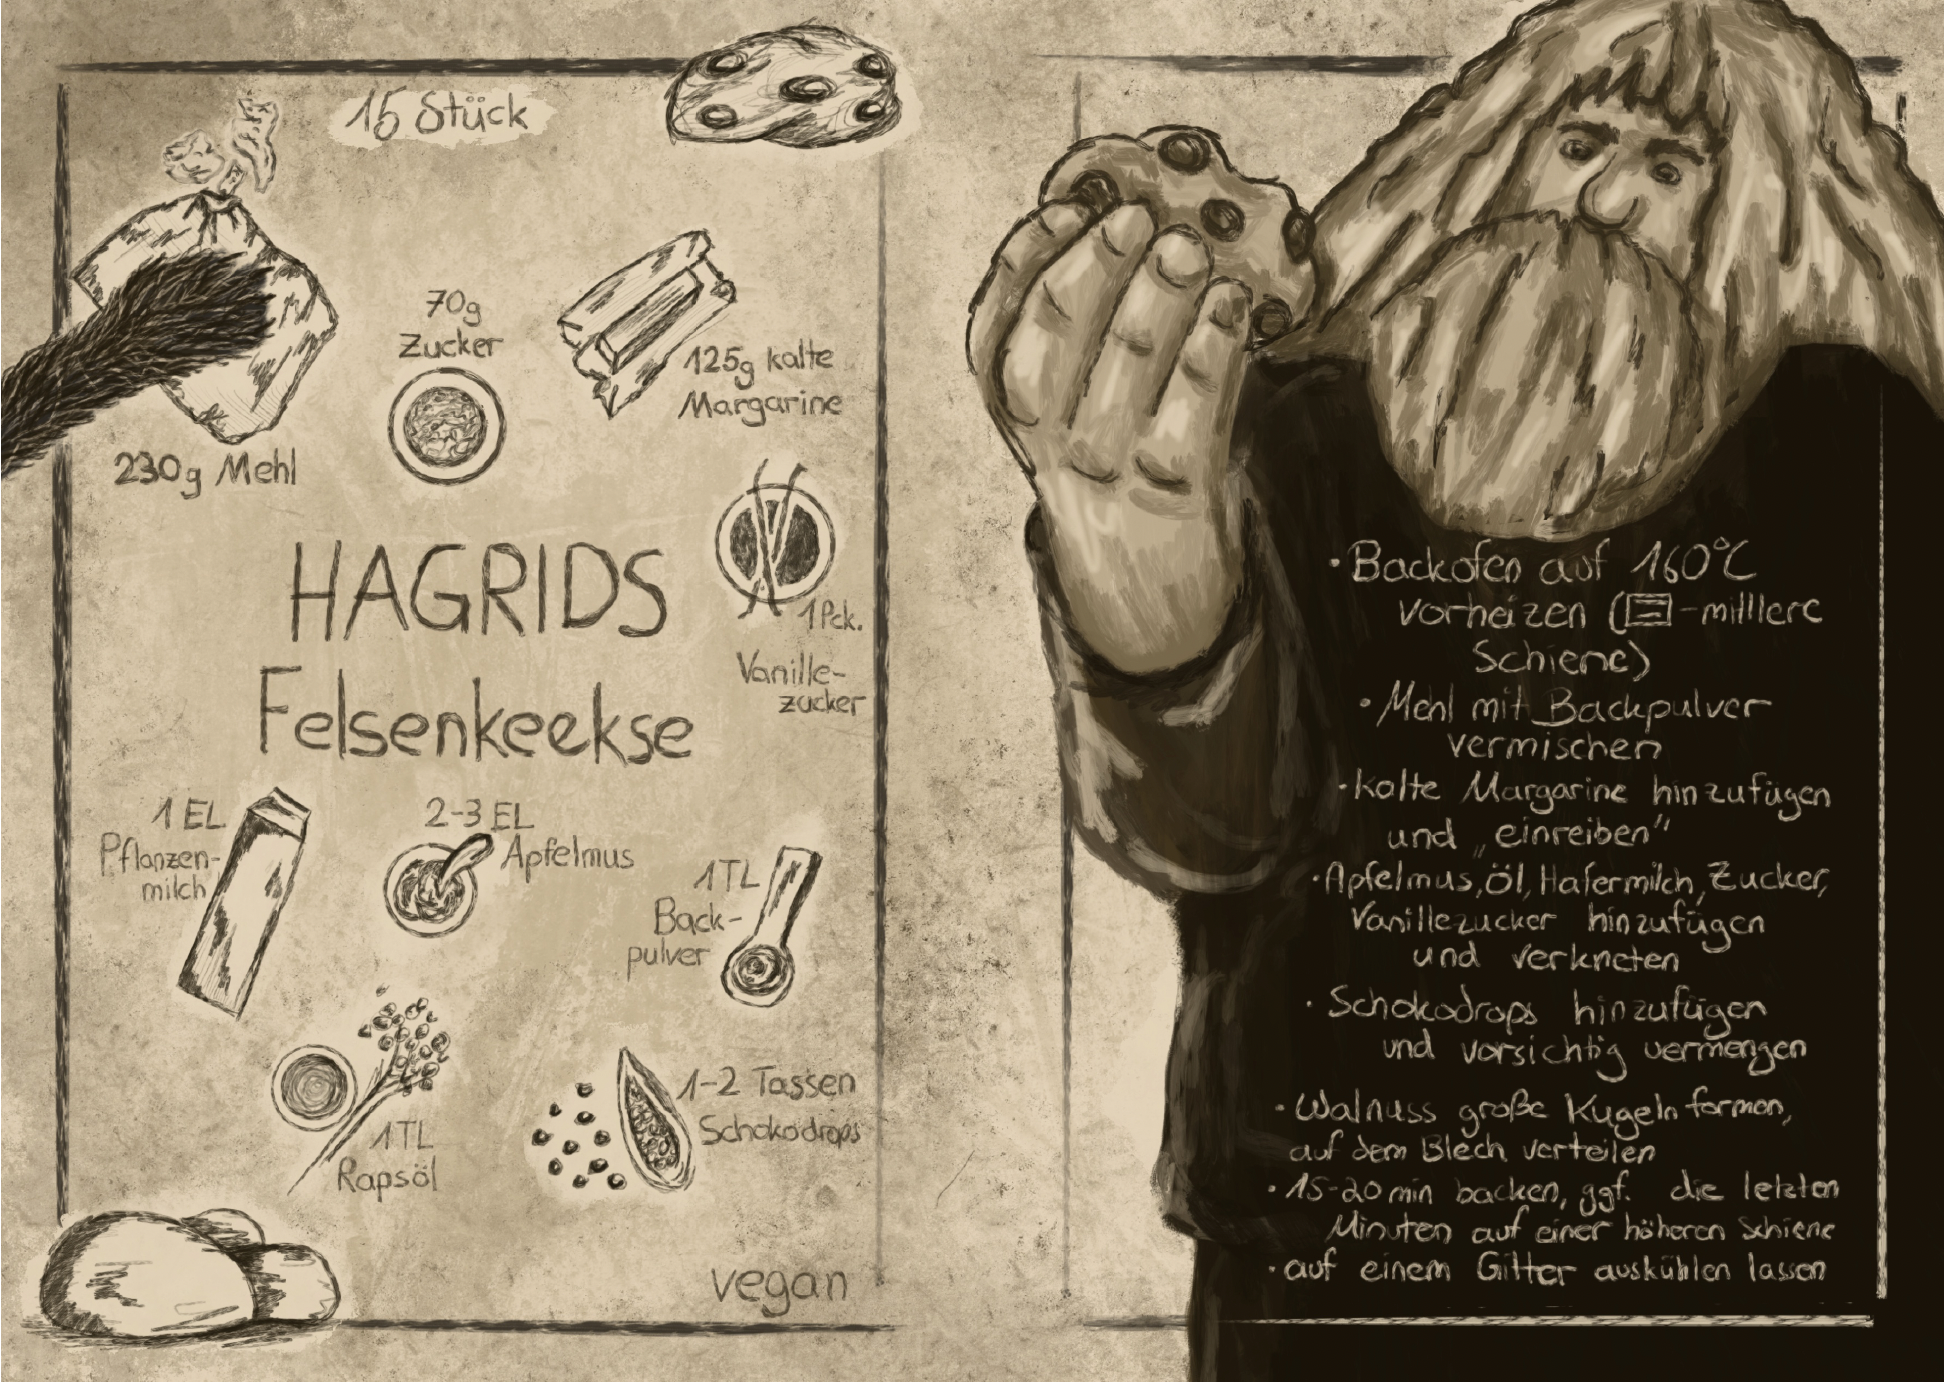 15 Stück
70g
Zucker
125g kalte
Margarine
230g Mehl
1 Pck.
Vanille-
zucker
HAGRIDS
Felsenkeekse
1 EL
Pflanzen-
milch
2-3 EL
Apfelmus
1TL
Back-
pulver
1TL
Rapsöl
1-2 Tassen
Schokodrops
vegan
· Backofen auf 160°C
vorheizen ( -mittlere
Schiene)
· Mehl mit Backpulver
vermischen
· Kalte Margarine hinzufügen
und „einreiben“
· Apfelmus, Öl, Hafermilch, Zucker,
Vanillezucker hinzufügen
und verkneten
· Schokodrops hinzufügen
und vorsichtig vermengen
· Walnuss große Kugeln formen,
auf dem Blech verteilen
· 15-20 min backen, ggf. die letzten
Minuten auf einer höheren Schiene
· auf einem Gitter auskühlen lassen